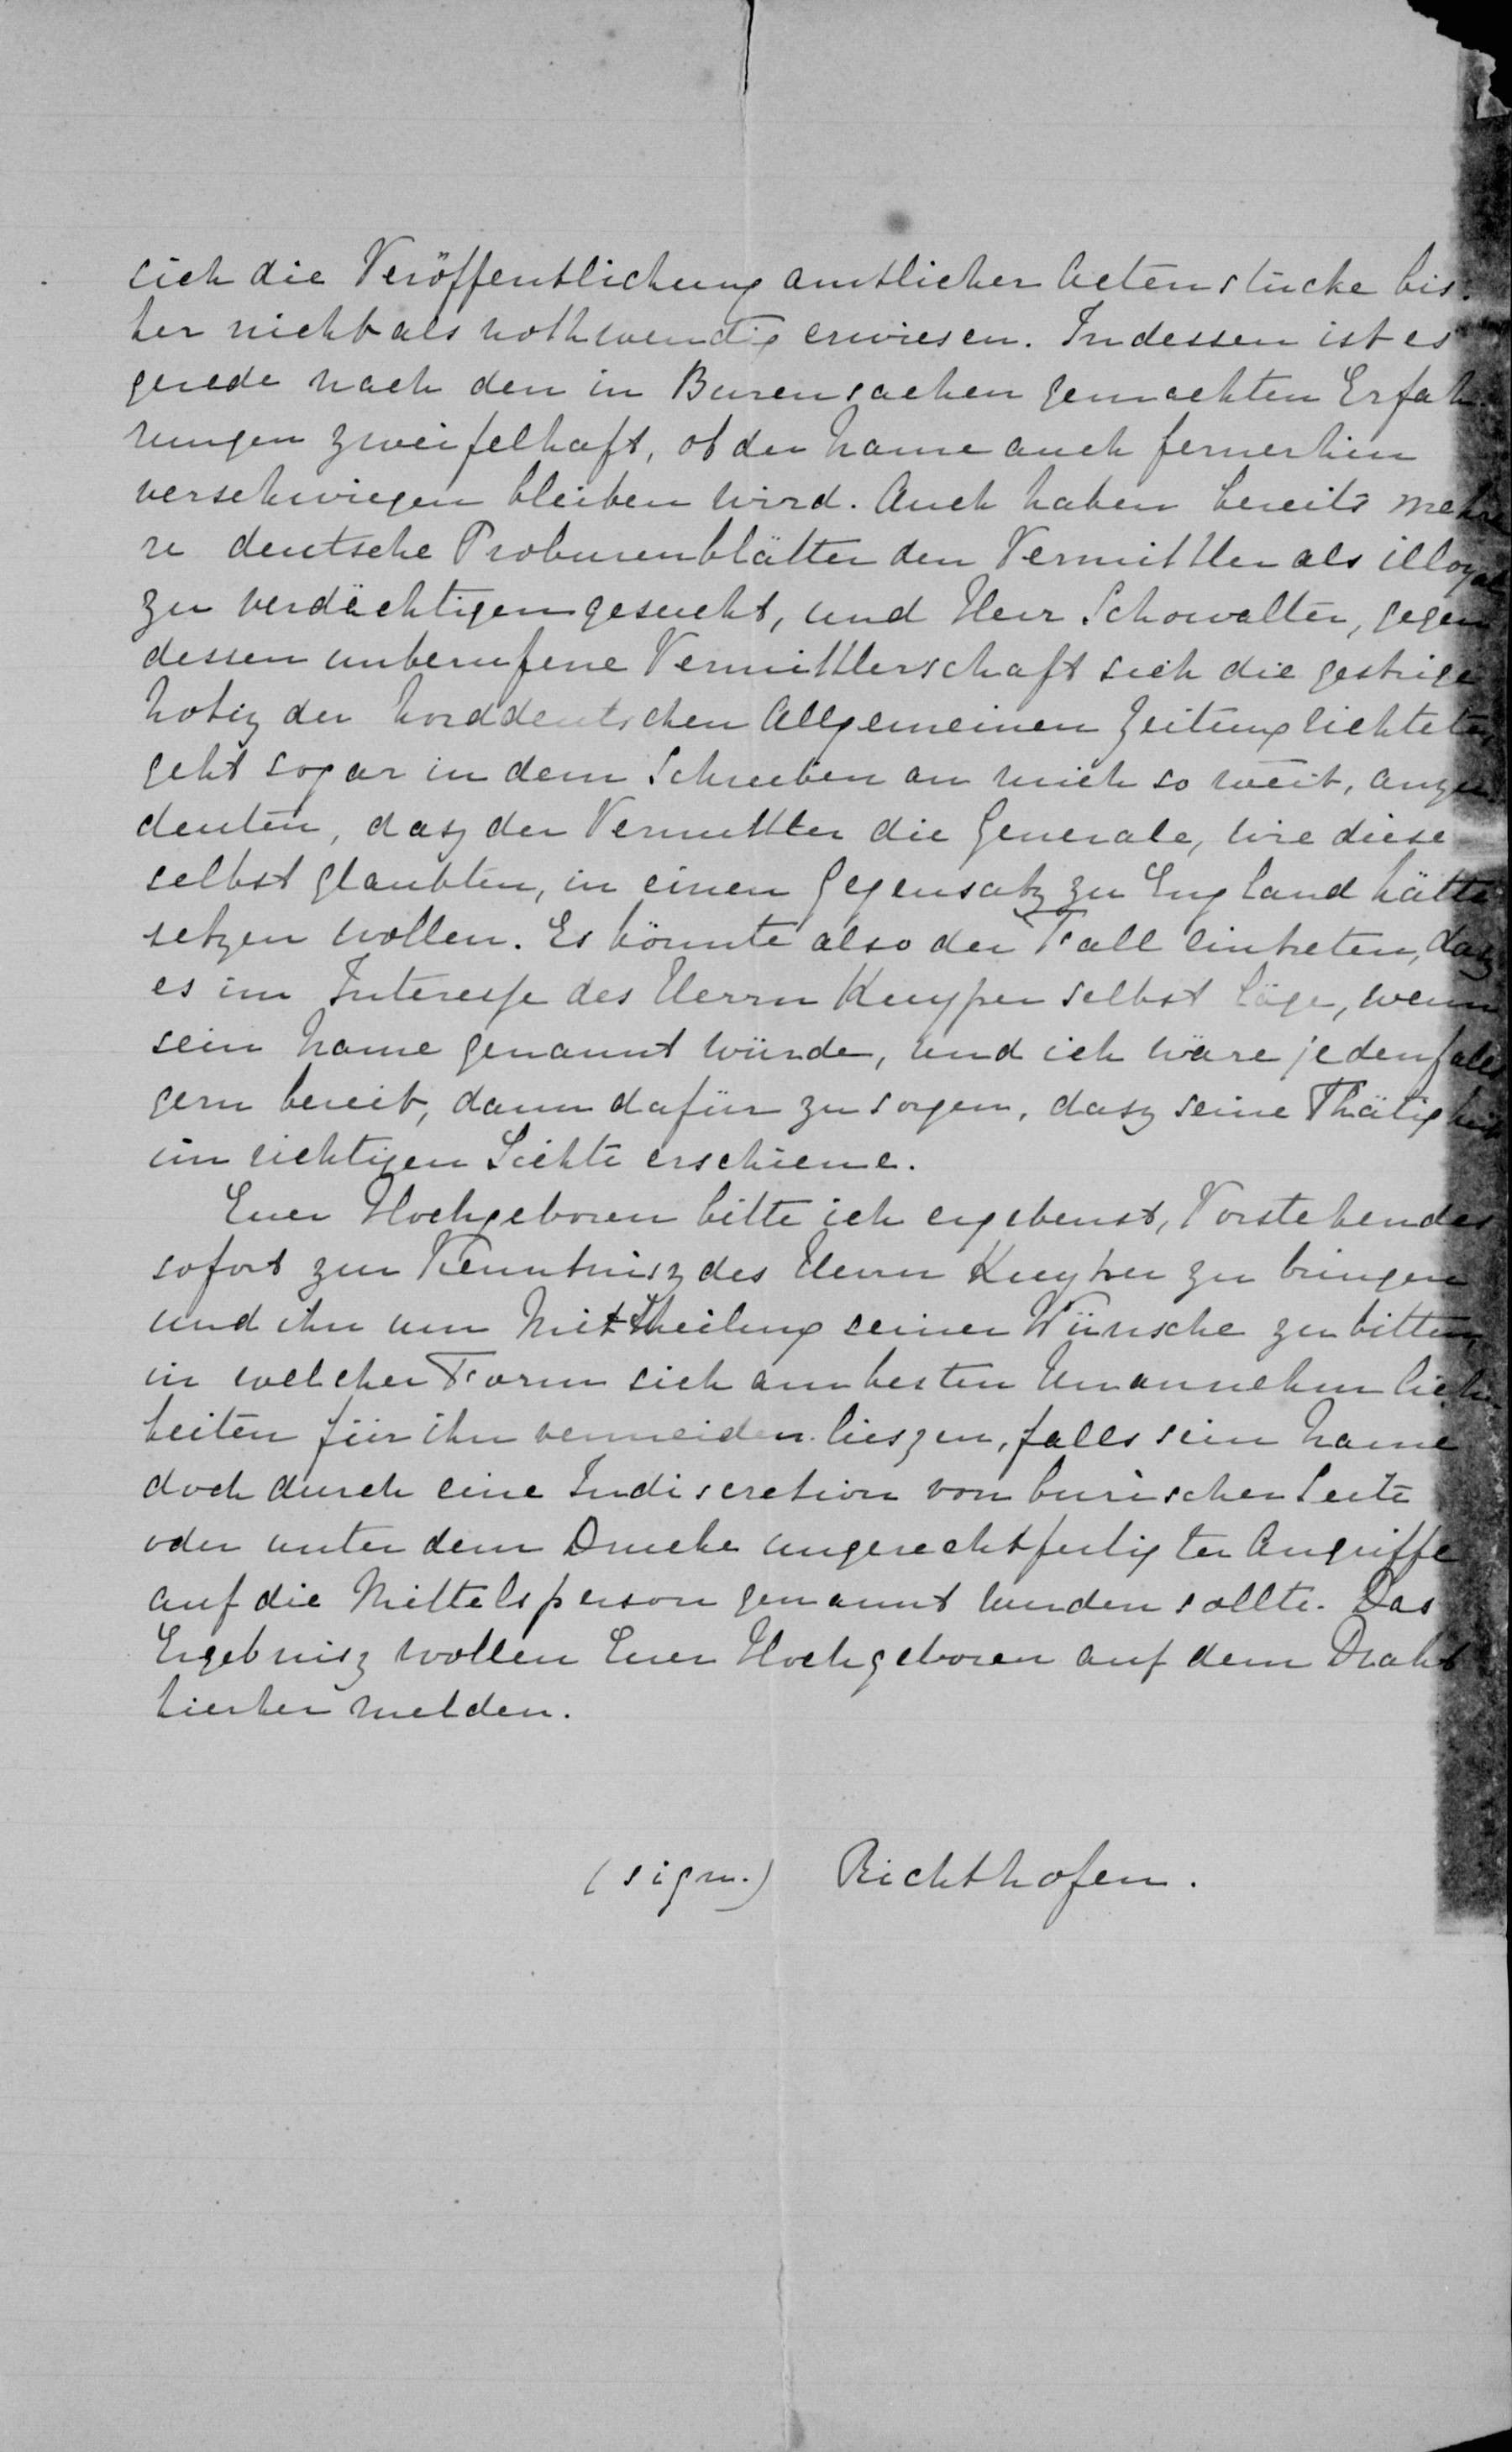 sich die Veröffentlichung amtlicher Actenstücke bis-
her nicht als nothwendig erwiesen. Indessen ist es
gerade nach den in Burensachen gemachten Erfah-
rungen zweifelhaft, ob der Name auch fernerhin
verschwiegen bleiben wird. Auch haben bereits mehre
re deutsche Proburenblätter den Vermittler als illoyal
zu verdächtigen gesucht, und Herr Schowalter, gegen
dessen unberufene Vermittlerschaft sich die gestrige
Notiz der Norddeutschen Allgemeinen Zeitung richtete,
geht sogar in dem Schreiben an mich so weit, anzu
deuten, dasz der Vermittler die Generale, wie diese
selbst glaubten, in einen Gegensatz zu England hätte
setzen wollen. Es könnte also der Fall eintreten, dasz
es im Interesse des Herrn Kuyper selbst läge, wenn
sein Name genannt würde, und ich wäre jedenfalls
gern bereit, dann dafür zu sorgen, dasz seine Thätigkeit
im richtigen Lichte erschiene.
Euer Hochgeboren bitte ich ergebenst, Vorstehendes
sofort zur Kenntnisz des Herrn Kuyper zu bringen
und ihn um Mittheilung seiner Wünsche zu bitten,
in welcher Form sich am besten Unannehmlich-
keiten für ihn vermeiden lieszen, falls sein Name
doch durch eine Indiscretion von burischer Seite
oder unter dem Drucke ungerechtfertigter Angriffe
auf die Mittelsperson genannt werden sollte. Das
Ergebnisz wollen Euer Hochgeboren auf dem Draht
hierher melden.
(sign.) Richthofen.